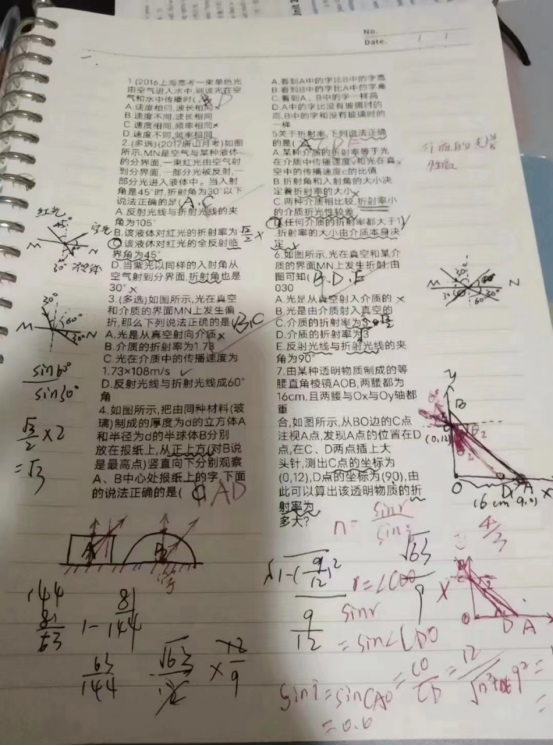 No.
Date.
1.(2016上海高考一束单色光
由空气进入水中,则该光在空
气和水中传播时( D
A.速度相同,波长相同
B.速度不同,波长相同
C.速度相同,频率相同
D.速度不同,频率相同
2.(多选)(2017唐山月考)如图
所示,MN是空气与某种液体
的分界面,一束红光由空气射
到分界面,一部分光被反射,一
部分光进入液体中。当入射
角是45°时,折射角为30°以下
说法正确的是( A.C
A.反射光线与折射光线的夹
角为105°
B.该液体对红光的折射率为
C.该液体对红光的全反射临
界角为45°
D.当紫光以同样的入射角从
空气射到分界面,折射角也是
30°
3.(多选)如图所示,光在真空
和介质的界面MN上发生偏
折,那么下列说法正确的是( B.C
A.光是从真空射向介质
B.介质的折射率为1.73
C.光在介质中的传播速度为
1.73×108m/s
D.反射光线与折射光线成60°
角
4.如图所示,把由同种材料(玻
璃)制成的厚度为d的立方体A
和半径为d的半球体B分别
放在报纸上,从正上方(对B说
是最高点)竖直向下分别观察
A、B中心处报纸上的字,下面
的说法正确的是( AD
A.看到A中的字比B中的字高
B.看到B中的字比A中的字高
C.看到A、B中的字一样高
D.A中的字比没有玻璃时的
高,B中的字和没有玻璃时的
一样
5关于折射率,下列说法正确
的是(
A.某种介质的折射率等于光
在介质中传播速度v和光在真
空中的传播速度c的比值
B.折射角和入射角的大小决
定着折射率的大小
C.两种介质相比较,折射率小
的介质折光性较差
D.任何介质的折射率都大于1,
折射率的大小由介质本身决
定
6.如图所示,光在真空和某介
质的界面MN上发生折射,由
图可知( B.D.E
030
A.光是从真空射入介质的
B.光是由介质射入真空的
C.介质的折射率为
D.介质的折射率为
E.反射光线与折射光线的夹
角为90°
7.由某种透明物质制成的等
腰直角棱镜AOB,两腰都为
16cm,且两腰与Ox与Oy轴都
重
合,如图所示,从BO边的C点
注视A点,发现A点的位置在D
点,在C、D两点插上大
头针,测出C点的坐标为
(0,12),D点的坐标为(90),由
此可以算出该透明物质的折
射率为
多大?
红光
M
N
sin60°
sin30°
×2
=√3
144
81
63
1-
81
144
63
144
√63
9
12
n=
sinr
sini
4
3
√63
9
sinr
=sin∠CDO
=
CO
CD
=
12
sini=sin CAO
=0.6
16cm
(0,12)
y
B
O
D
A